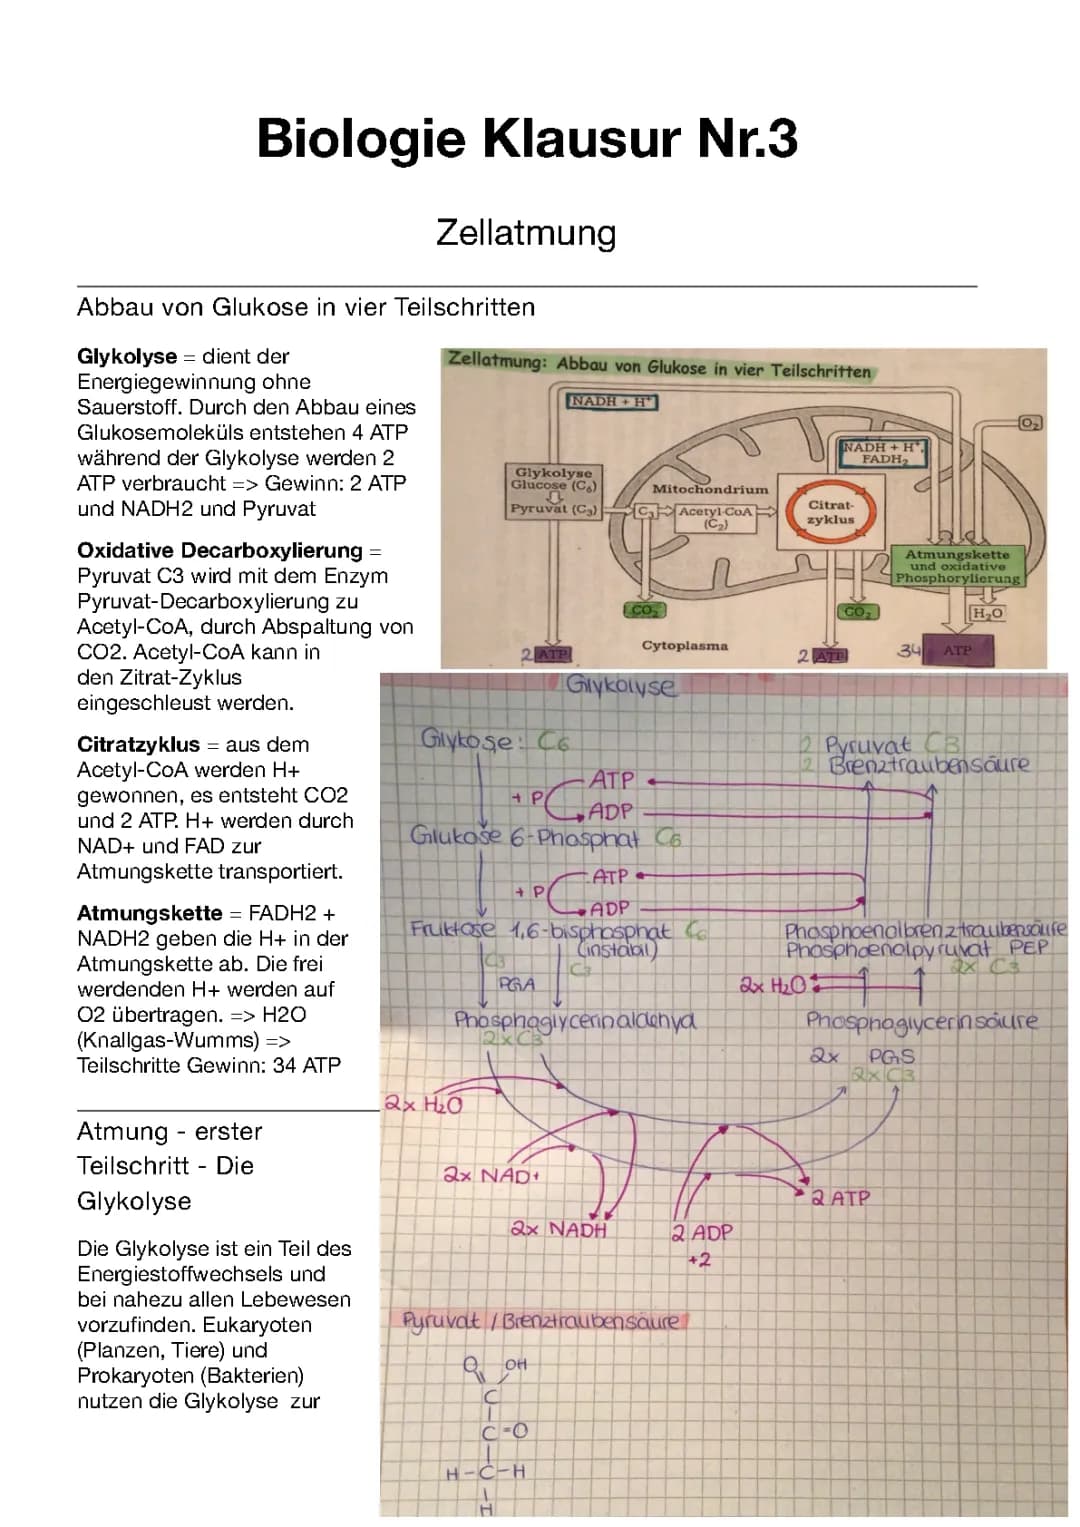 Biologie Klausur Nr.3
Zellatmung
Abbau von Glukose in vier Teilschritten
Glykolyse = dient der
Energiegewinnung ohne
Sauerstoff. Durch den Abbau eines
Glukosemoleküls entstehen 4 ATP
während der Glykolyse werden 2
ATP verbraucht => Gewinn: 2 ATP
und NADH2 und Pyruvat
Oxidative Decarboxylierung =
Pyruvat C3 wird mit dem Enzym
Pyruvat-Decarboxylierung zu
Acetyl-CoA, durch Abspaltung von
CO2. Acetyl-CoA kann in
den Zitrat-Zyklus
eingeschleust werden.
Citratzyklus = aus dem
Acetyl-CoA werden H+
gewonnen, es entsteht CO2
und 2 ATP. H+ werden durch
NAD+ und FAD zur
Atmungskette transportiert.
Atmungskette = FADH2 +
NADH2 geben die H+ in der
Atmungskette ab. Die frei
werdenden H+ werden auf
O2 übertragen. => H2O
(Knallgas-Wumms) =>
Teilschritte Gewinn: 34 ATP
Atmung - erster
Teilschritt - Die
Glykolyse
Die Glykolyse ist ein Teil des
Energiestoffwechsels und
bei nahezu allen Lebewesen
vorzufinden. Eukaryoten
(Planzen, Tiere) und
Prokaryoten (Bakterien)
nutzen die Glykolyse zur
Zellatmung: Abbau von Glukose in vier Teilschritten
NADH + H⁺
O₂
NADH + H⁺,
FADH₂
Glykolyse
Glucose (C₆)
Pyruvat (C₃)
Mitochondrium
C₃
Acetyl-CoA
(C₂)
Citrat-
zyklus
Atmungskette
und oxidative
Phosphorylierung
CO₂
CO₂
H₂O
Cytoplasma
2 ATP
2 ATP
34 ATP
Glykolyse
Glykose: C6
2 Pyruvat C3
2 Brenztraubensäure
ATP
+ P
ADP
Glukose 6-Phosphat C6
ATP
+ P
ADP
Fruktose 1,6-bisphosphat C6
(instabil)
C3
C3
PGA
Phosphoenolbrenztraubensäure
Phosphoenolpyruvat PEP
2x C3
2x H₂O
Phosphoglycerinaldehyd
2x C3
Phosphoglycerinsäure
2x PGS
2x C3
2x H₂O
2x NAD+
2x NADH
2 ADP
+2
2 ATP
Pyruvat / Brenztraubensäure
O OH
C
C=O
H-C-H
H